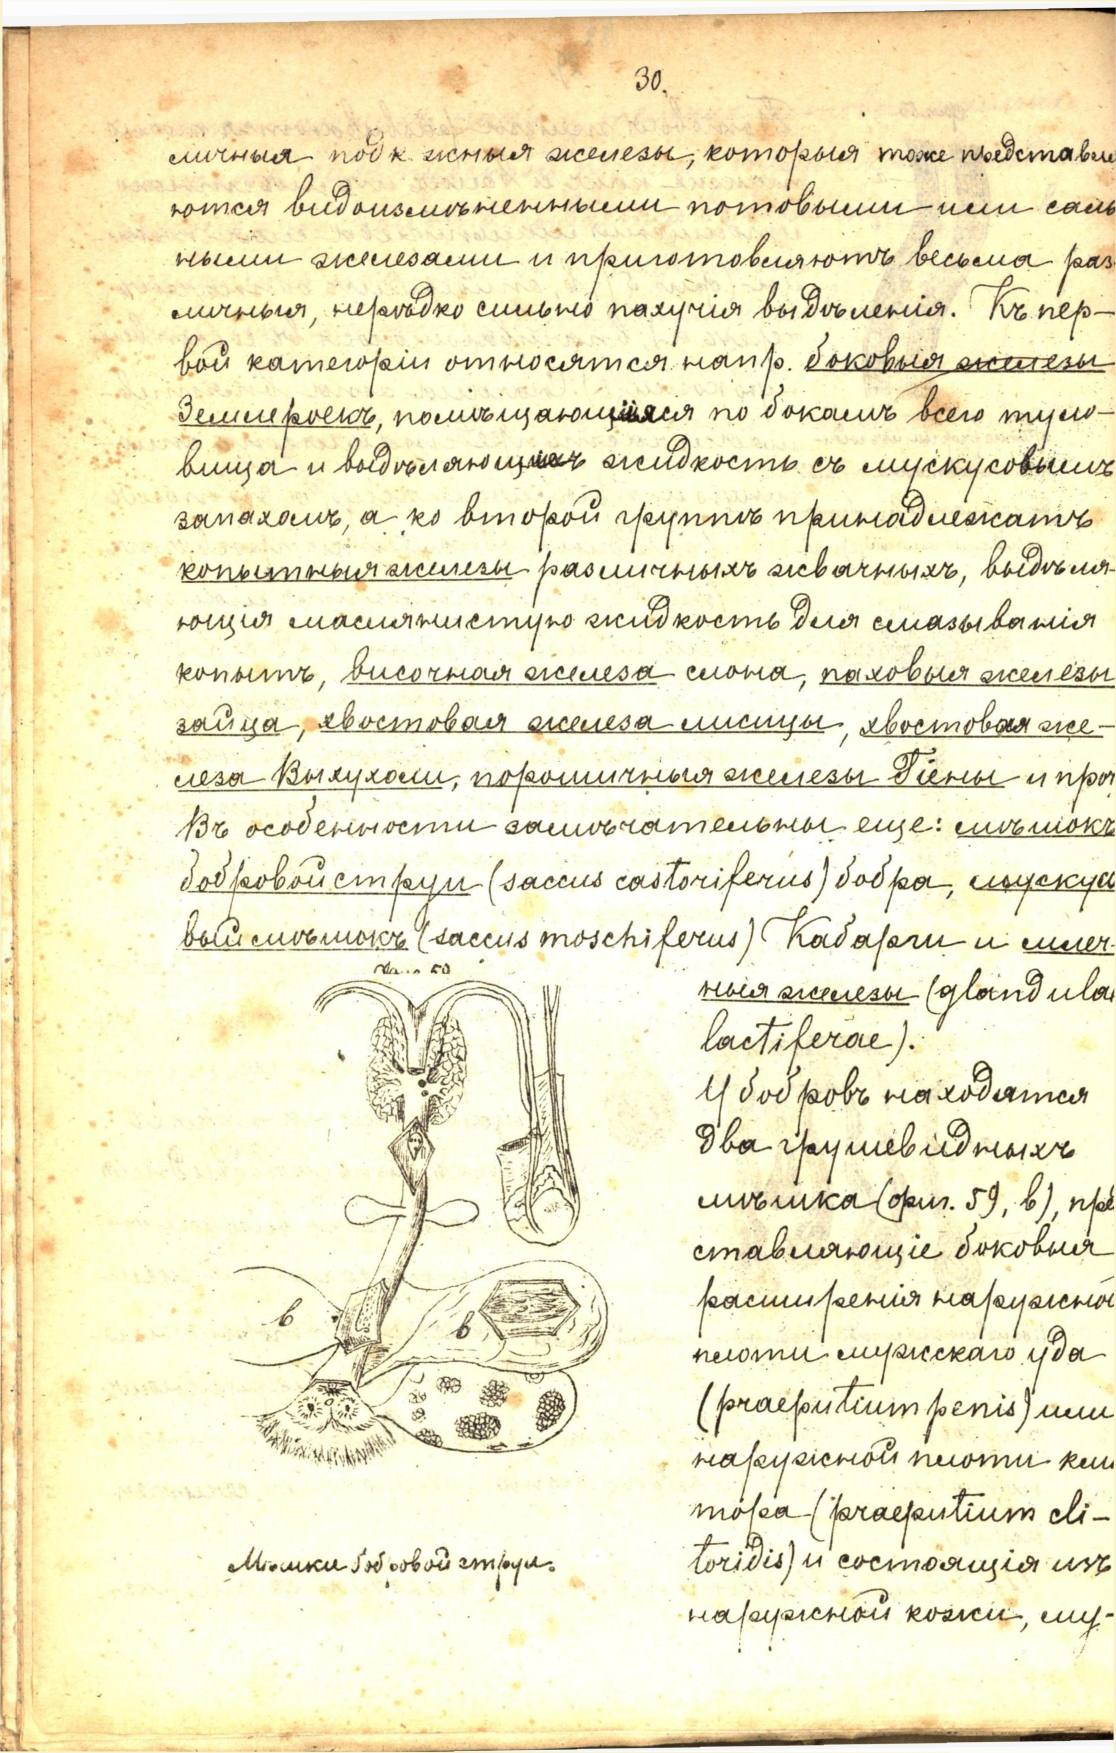 30.
личныя подк жныя железы, которыя тоже представля
ются видоизмѣненными потовыми или саль
ными железами и приготовляютъ весьма раз
личныя, нерѣдко сильно пахучія выдѣленія. Къ пер-
вой категоріи относятся напр. боковыя железы
Землероекъ, помѣщающіяся по бокамъ всего туло-
вища и выдѣляющихъ жидкость съ мускусовымъ
запахомъ, а ко второй группѣ принадлежатъ
копытныя железы различныхъ жвачныхъ, выдѣля-
ющія маслянистую жидкость для смазыванія
копытъ, височная железа слона, паховыя железы
зайца, хвостовая железа лисицы, хвостовая же-
леза Выхухоли, порошичныя железы Гіены и проч
Въ особенности замѣчательны еще: мѣшокъ
бобровой струи (saccus castoriferus) бобра, мускусо
вый мѣшокъ (saccus moschiferus) Кабарги и млеч-
59
ныя железы (glandulae
lactiferae).
У бобровъ находятся
два грушевидныхъ
мѣшка (фиг. 59, b), пре
ставляющіе боковыя
расширенія наружной
плоти мужскаго уда
(praeputium penis) или
наружной плоти кли
тора (praeputium cli-
toridis) и состоящія изъ
наружной кожи, му-
b
b
Мѣшки бобровой струи.